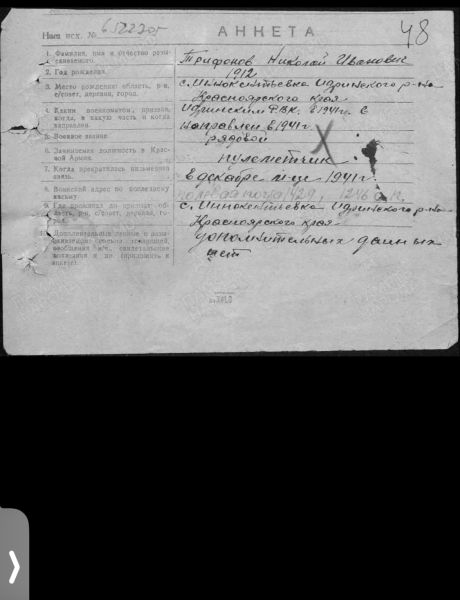 Наш исх. № 652220с
АНКЕТА
48
1. Фамилия, имя и отчество разыскиваемого.
Трифонов Николай Иванович
2. Год рождения.
1912
3. Место рождения область, р-н, с/совет, деревня, город.
с. Иннокентьевка Идринского р-на
Красноярского края
4. Каким военкоматом, призван, когда, в какую часть и когда направлен.
Идринским РВК. в 1941 г. в
направлен в 1941 г.
5. Военное звание.
рядовой
6. Занимаемая должность в Красной Армии.
пулеметчик
7. Когда прекратилась письменная связь.
в декабре м-це 1941 г.
8. Воинский адрес по последнему письму.
полевая почта 1429 1246 с.п.
9. Где проживал до призыва: область, р-н, с/совет, деревня, город.
с. Иннокентьевка Идринского р-на
Красноярского края
10. Дополнительные данные о
дополнительных данных
нет